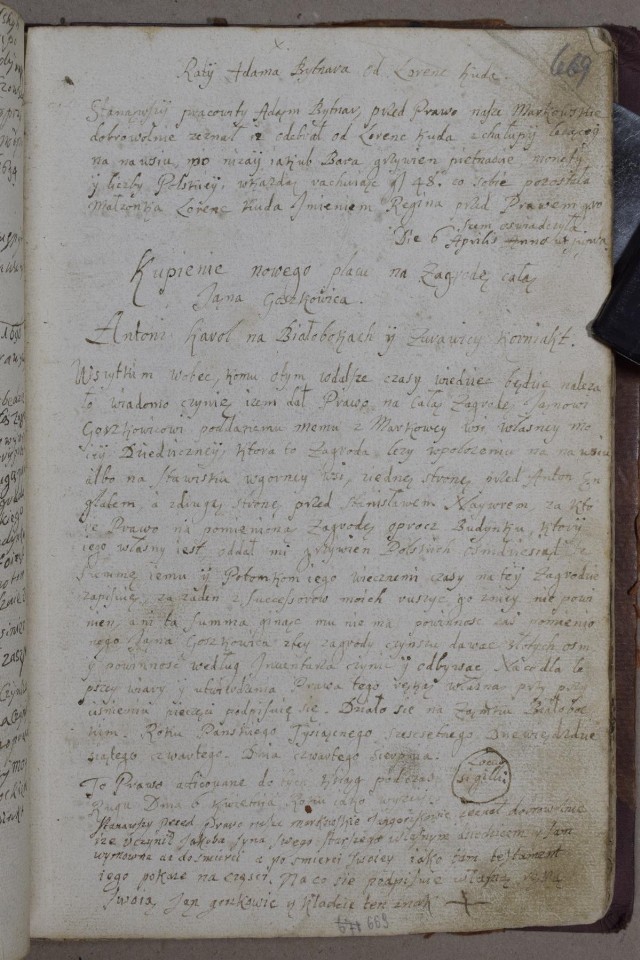 669
Raty Adama Bytnara od Lorenc Kuda.
Stanąwszy pracowity Adam Bytnar, przed Prawo nasze Markowskie
dobrowolnie zeznał iz odebrał od Lorenc Kuda z chalupy lezącey
na nawsiu, po nizey Jakub Bara grzywien pietnascie monety
y liczby Polskiey, w kazdą rachuiąc gl 48. co sobie pozostała
Małzonka Lorenc Kuda Jmieniem Regina przed Prawem
oswiadczyła
Die 6 Aprilis Anno
Kupienie nowego placu na Zagrodę całą
Jana Goszkowica.
Antoni Karol na Białobokach y Zurawicy Korniakt.
Wszytkim wobec, komu otym wdalsze czasy wiedziec będzie naleza
ło wiadomo czynię izem dał Prawo na całą Zagrodę Janowi
Gorzkowicowi poddanemu memu z Markowey wsi własney mo
iey Dziedziczney, ktora to Zagroda lezy wpołozeniu na nawsiu
albo na Stawisku wgorney wsi, ziedney stronę przed Anton
głabem, a zdrugą stronę przed Stanisławem Naywrem, za kto
re Prawo na pomienioną Zagrodę oprocz Budynku, ktory
iego własny iest, oddał mi grzywien Polskich osmdziesiąt
summę iemu y Potomkom iego wiecznemi czasy natey Zagrodzie
zapisuię, za zaden z Successorow moich ruszyc go zniey nie powi
nien, ani ta summa ginąc mu nie ma powinnosc zas pomienio
nego Jana Goszkowica ztey zagrody czynszu dawac złotych osm
y powinnosc według Inventarza czynic y odbywac Naco dla le
pszey wiary y utwierdzenia Prawa tego ręką własną przy przy
cisnieniu pieczęci podpisuię się. Działo się na Zamku Białoboc
kim. Roku Panskiego Tysiącznego szescsetnego Dziewięcdzie
siątego czwartego. Dnia czwartego Sierpnia.
Locus
sigilli
To Prawo acticowane do tych Xsiąg podczas
Ruga Dnia 6 Kwietnia Roku iako wyzey.
Stanąwszy przed Prawo nasze markowskie Jan gorzkowic zeznał dobrowolnie
ize Uczynił Jakuba syna swego starszego własnym dziedzicem y sam
wymowna az do smierci a po smierci swoiey iako tam testament
iego pokaze na częsci. Na co sie podpisuie własną ręką
swoią Jan gorzkowic y kładzie ten znak +
669